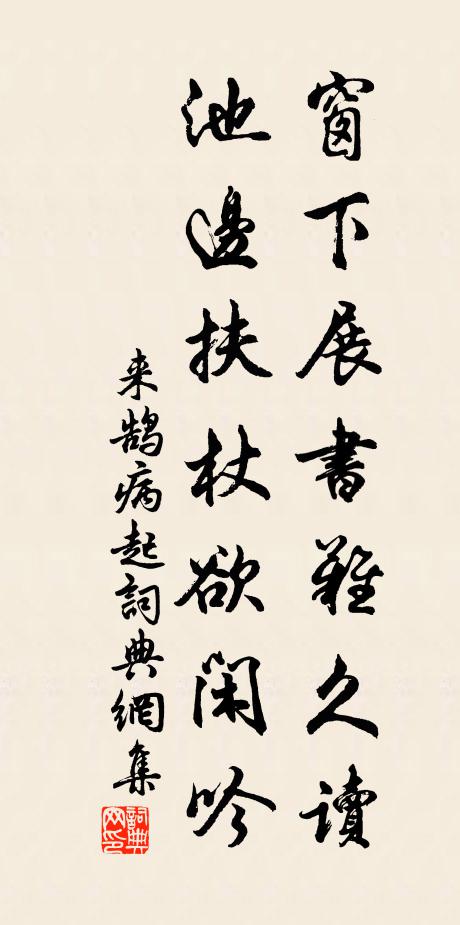 窗下展書難久讀
池邊扶杖欲閑吟
来鵠病起詞典網集
詞典网印